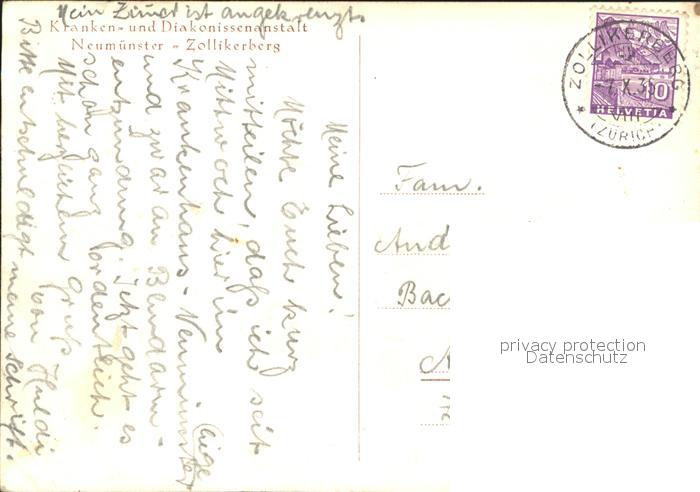 Mein Zimer ist angekreuzt.
Kranken- und Diakonissenanstalt
Neumünster - Zollikerberg
Meine Lieben!
Möchte Euch kurz
mitteilen, daß ich seit
Mittwoch hier im
Krankenhaus - Neumünster
liege
und zwar an Blindarm-
entzündung. Jetzt geht es
schon ganz ordentlich.
Mit herzlichem Gruß
von Huldi
Bitte entschuldigt meine Schrift.
ZOLLIKERBERG
X.35
VIII
(ZÜRICH)
10
HELVETIA
Fam.
And
Bac
privacy protection
Datenschutz